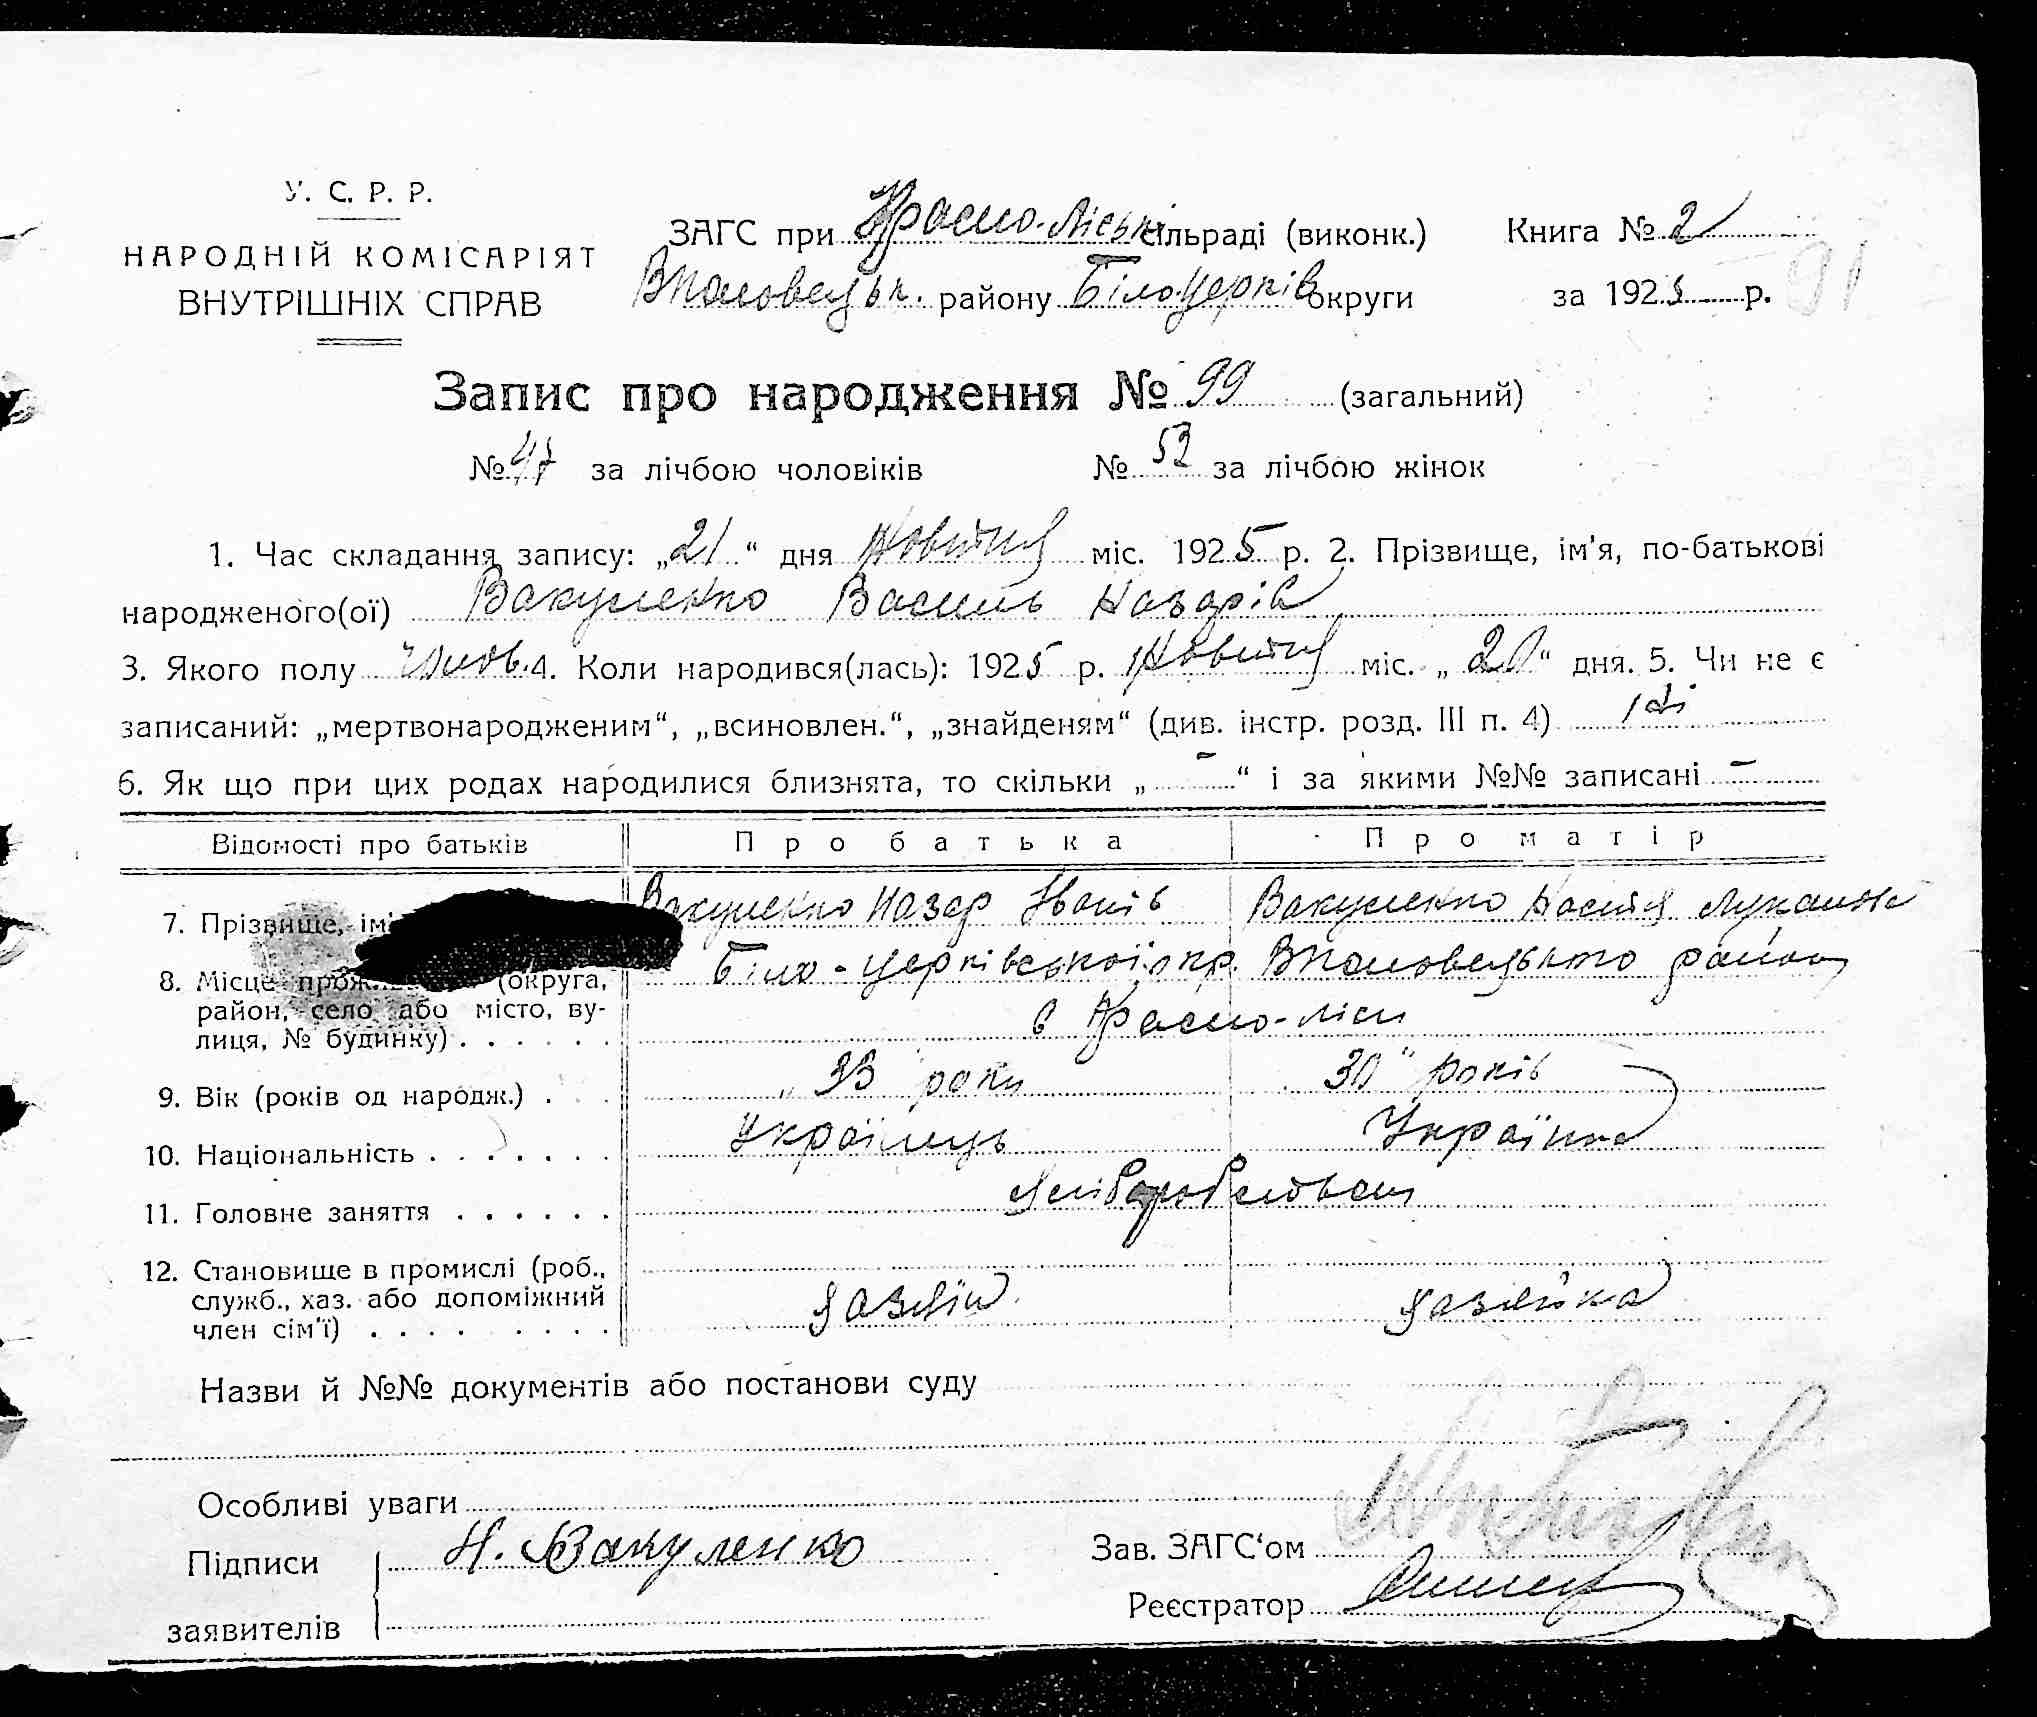 У. С. Р. Р.
НАРОДНІЙ КОМІСАРІЯТ
ВНУТРІШНІХ СПРАВ
ЗАГС при Красно-Ліській сільраді (виконк.) Книга № 2
району Білоцерків округи за 1925 р.
91
Запис про народження № 99 (загальний)
№ 47 за лічбою чоловіків № 52 за лічбою жінок
1. Час складання запису: „21“ дня Жовтня міс. 1925 р. 2. Прізвище, ім'я, по-батькові
народженого(ої) Вакуленко Василь Назарів
3. Якого полу чолов. 4. Коли народився(лась): 1925 р. Жовтня міс. „20“ дня. 5. Чи не є
записаний: „мертвонародженим“, „всиновлен.“, „знайденям“ (див. інстр. розд. III п. 4) ні
6. Як що при цих родах народилися близнята, то скільки „ - “ і за якими №№ записані -
Відомості про батьків Про батька Про матір
7. Прізвище, ім' Вакуленко Назар Іванів Вакуленко Настя
8. Місце (округа, Біло-Церківської окр. району
район, село або місто, ву- в Красно-ліси
лиця, № будинку) . . . . . .
9. Вік (років од народж.) . . . „33" роки 30" років
10. Національність . . . . . . . Українець Українка
11. Головне заняття . . . . . . Хліборобством
12. Становище в промислі (роб.,
служб., хаз. або допоміжний хазяїн хазяйка
член сім'ї) . . . . . . . . .
Назви й №№ документів або постанови суду
Особливі уваги
Підписи Н. Вакуленко Зав. ЗАГС‘ом
заявителів Реєстратор